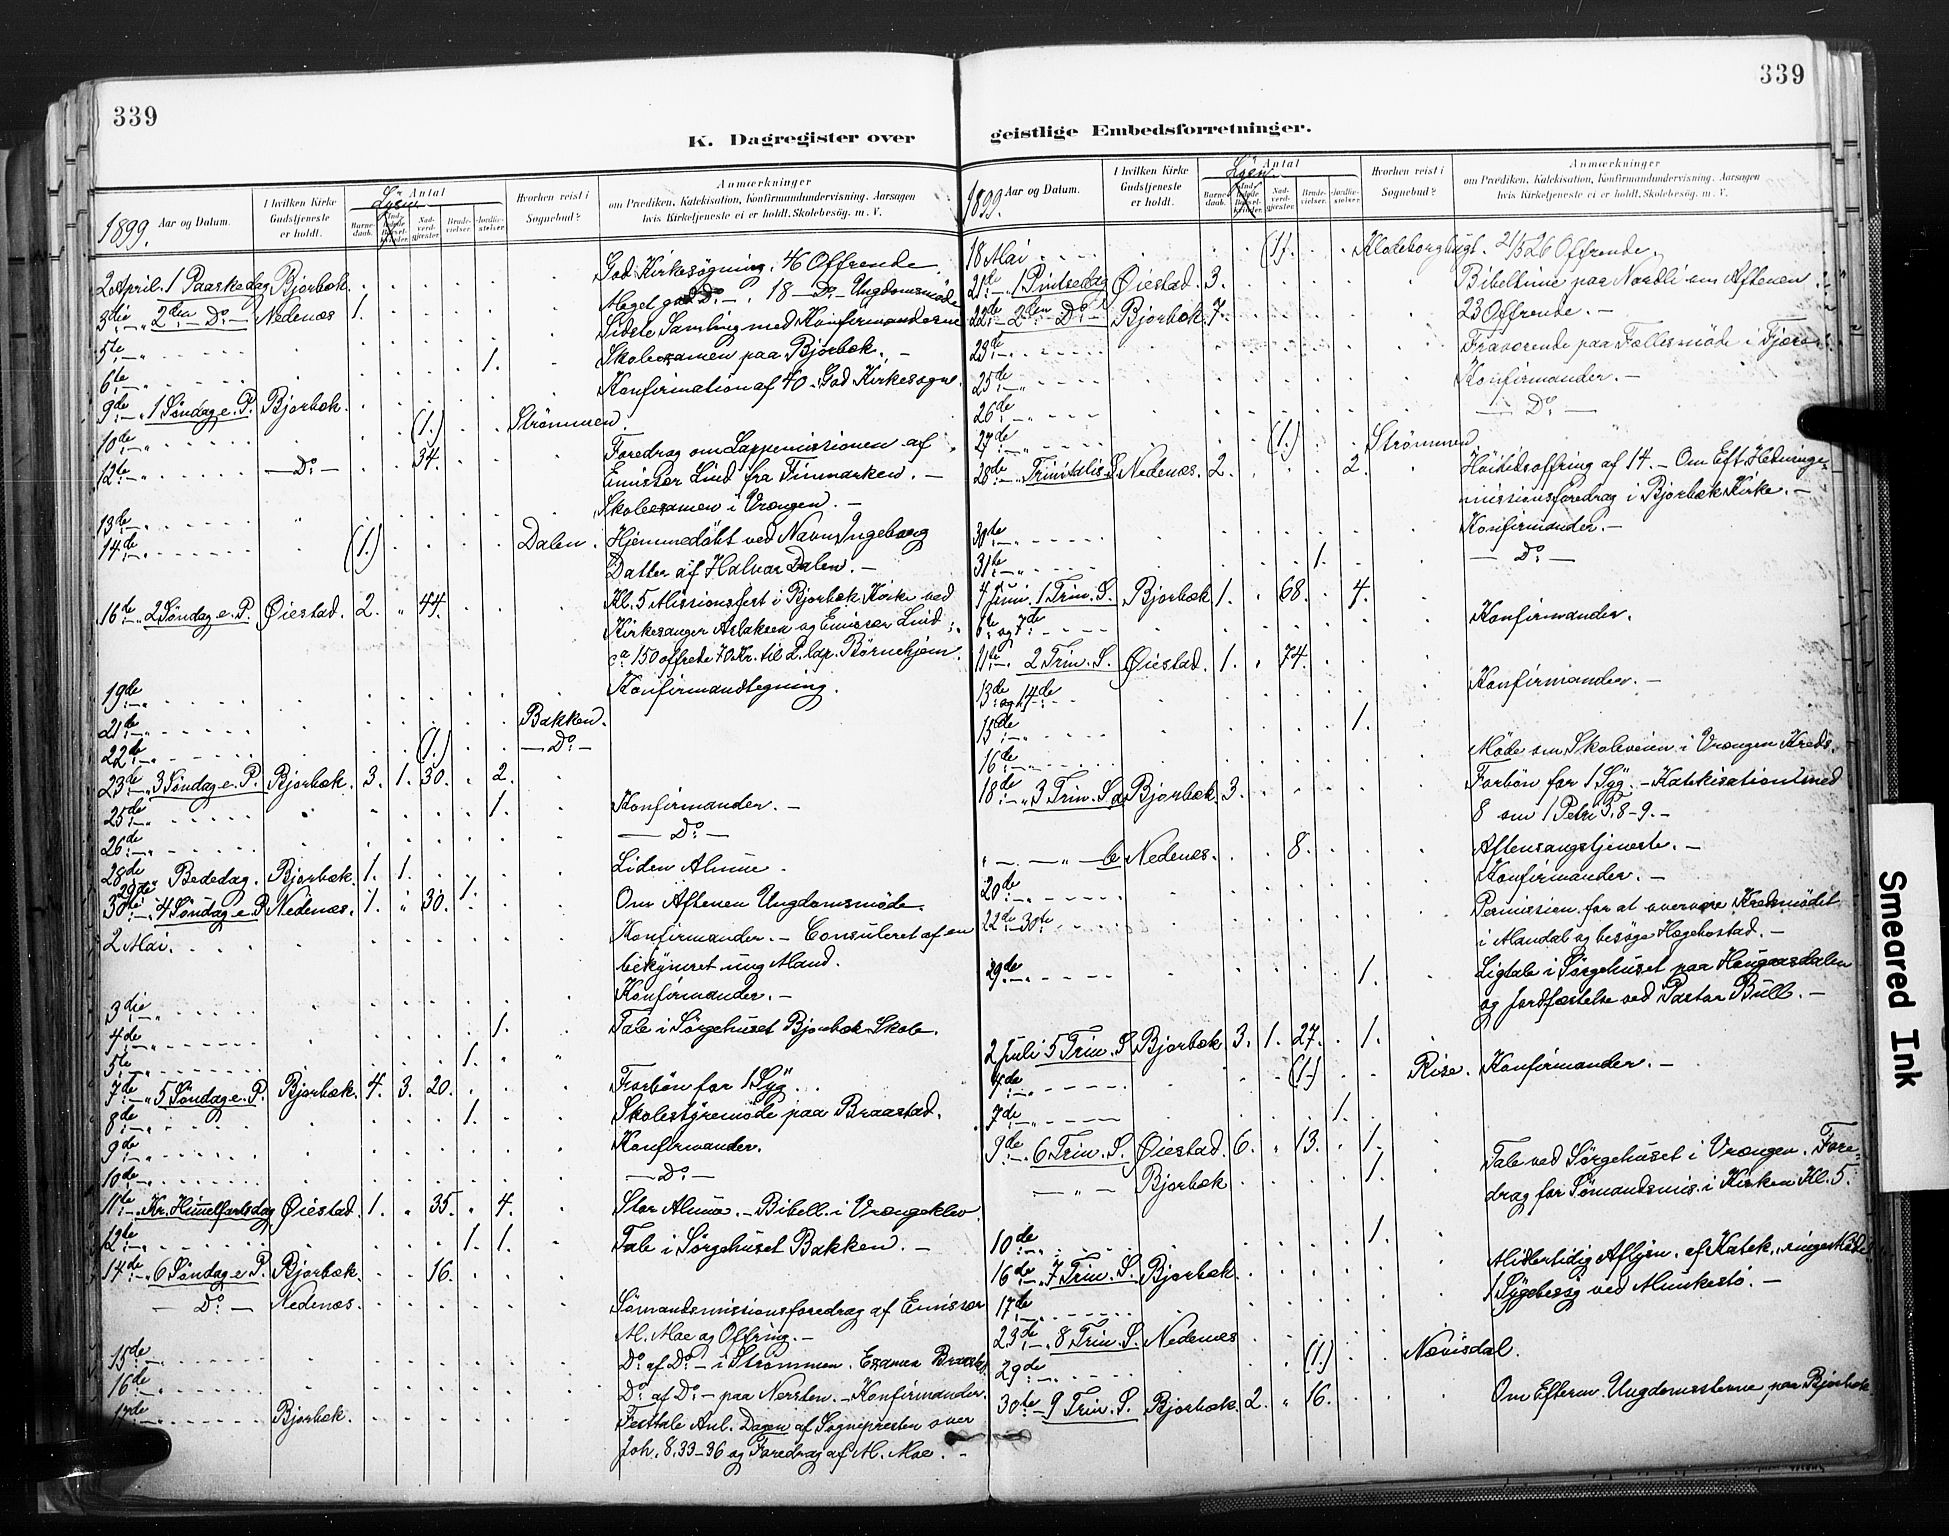 339
K. Dagregister over
1899.
Aar og Datum.
I hvilken Kirke Gudstjeneste er holdt.
Antal
Barnedaab.
Nadverdgjester.
Brudevielser.
Jordfæstelser.
Hvorhen reist i Sognebud?
Anmærkninger
om Prædiken, Katekisation, Konfirmandundervisning. Aarsagen
hvis Kirketjeneste ei er holdt. Skolebesög. m. V.
2 April. 1 Paaskedag Bjorbæk. God Kirkesøgning. 46 Offrende.
3die " 2den Do Nedenæs 1. Meget god Do. 18 Do. Ungdomsmøde
5te " Sidste Samling med Konfirmanderne
6te " 1. Skoleexamen paa Bjorbæk. –
9de " 1 Søndag e. P. Bjorbæk. Konfirmation af 40. God Kirkesøgn.
10de " (1.) Strømmen.
12te " Do 34. Foredrag om Lappemissionen af
Emissær Lind fra Finmarken. –
13de " Skoleexamen i Vrengen. –
14de " (1.) Dalen. Hjemmedøbt ved Navn Ingeborg
Datter af Halvor Dalen. –
16de " 2 Søndag e. P. Øiestad. 2. " 44. Kl. 5 Missionsfest i Bjorbæk Kirke ved
Kirkesanger Aslaksen og Emissær Lind
ca 150 offrede 70 Kr. til d. lap. Børnehjem.
19de " Konfirmandtegning.
21de " Bakken.
22de " (1.) Do
23de " 3 Søndag e. P. Bjorbæk. 3. 1. 30. 2.
25de " 1. Konfirmander. –
26de " Do
28de " Bededag. Bjorbæk. 1. 1. Liden Almue.
29de 1.
30te " 4 Søndag e. P. Nedenæs. 1. " 30. Om Aftenen Ungdomsmøde.
2 Mai. Konfirmander. – Consuleret af en
bekymret ung Mand.
3die " Konfirmander. –
4de " 1. Tale i Sørgehuset Bjorbæk Skole.
5te " 1.
7de " 5 Søndag e. P. Bjorbæk. 4. 3. 20. Forbøn for 1 Syg.
8de " 1. Skolestyremøde paa Braastad.
9de " Konfirmander.
10de " Do
11te " Kr. Himelfartsdag Øiestad. 1. " 35. 4. Stor Almue. – Bibell. i Vrengeklev
12te " 1. 1. Tale i Sørgehuset Bakken. –
14de " 6 Søndag e. P. Bjorbæk. 16.
Do Nedenæs. Sømandsmissionsforedrag af Emissær
M. Moe og Offring. –
15de " Do af Do – i Strømmen. Examen
16de " Do af Do – paa Nersten. – Konfirmander.
17de " Bjorbæk. Festtale Anl. Dagen af Sognepresten over
Joh. 8.33-36 og Foredrag af M. Moe. –
339
geistlige Embedsforretninger.
1899.
Aar og Datum.
I hvilken Kirke Gudstjeneste er holdt.
Antal
Barnedaab.
Nadverdgjester.
Brudevielser.
Jordfæstelser.
Hvorhen reist i Sognebud?
Anmærkninger
om Prædiken, Katekisation, Konfirmandundervisning. Aarsagen
hvis Kirketjeneste ei er holdt. Skolebesög. m. V.
18 Mai (1). Klodeborgbugt. 21/5 26 Offrende.
21de " 1 Pintsedag Øiestad. 3. Bibeltime paa Nordli om Aftenen
22de " 2den Do Bjorbæk 7. 23 Offrende. –
23de " Fraværende paa Fællesmøde i
25de " Konfirmander. –
26de " Do
27de " (1.) Strømmen
28de " Trinitatis S. Nedenæs. 2. 2. Høitidsoffring af 14. – Om Eft. Hedninge-
missionsforedrag i Bjorbæk Kirke. –
30te " Konfirmander. –
31te " 1. Do
4 Juni. 1 Trin. S. Bjorbæk 1. 68. 4.
6te og 7de Konfirmander.
11te " 2 Trin. S. Øiestad. 1. " 74.
13de og 14de Konfirmander. –
15de " 1.
16de " Møde om Skoleveien i Vrengen Kreds.
18de " 3 Trin. S. a Bjorbæk 3. Forbøn for 1 Syg. – Katekisation med
8 om 1 Petri 3,8-9. –
" b Nedenæs. 8. Aftensangstjeneste. –
20de " Konfirmander. –
22de – 30te Permission for at overvære Kredsmødet
i Mandal og besøge Hægebostad. –
29de " 1. Ligtale i Sørgehuset paa
og Jordfæstelse ved Pastor Bull. –
2 Juli 5 Trin. S. Bjorbæk 3. 1. 27. 1.
4de (1.) Rise. Konfirmander. –
7de " 1.
9de " 6 Trin. S. Øiestad. 6. " 13. 1.
" Bjorbæk 1. Tale ved Sørgehuset i Vrengen. Fore-
drag for Sømandsmis. i Kirken Kl. 5.
10de " 1.
16de " 7 Trin. S. Bjorbæk. Midlertidig Aflysn. af Katek.
17de " 1 Sygebesøg ved Munkestø. –
23de " 8 Trin. S. Nedenæs
29de " (1.) Nævisdal.
30te " 9 Trin. S. Bjorbæk. 2. " 16. Om Efterm. Ungdomsstevne paa Bjorbæk
Smeared Ink